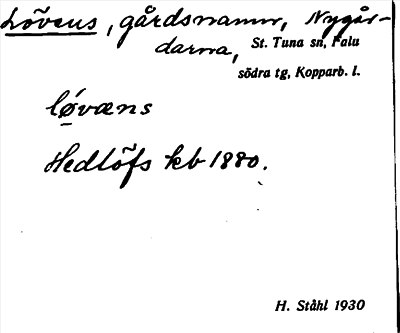 Lövens, gårdsnamn, Nygår-
darna, St. Tuna sn, Falu
södra tg, Kopparb. l.
lǿvæns
Hedlöfs kb 1880.
H. Ståhl 1930